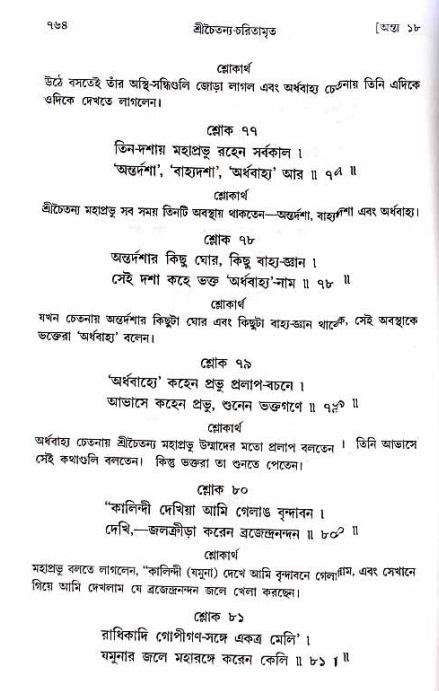 ৭৬৪
শ্রীচৈতন্য-চরিতামৃত
[অন্ত্য ১৮
শ্লোকার্থ
উঠে বসতেই তাঁর অস্থি-সন্ধিগুলি জোড়া লাগল এবং অর্ধবাহ্য চেতনায় তিনি এদিকে
ওদিকে দেখতে লাগলেন।
শ্লোক ৭৭
তিন-দশায় মহাপ্রভু রহেন সর্বকাল ।
‘অন্তর্দশা’, ‘বাহ্যদশা’, ‘অর্ধবাহ্য’ আর ॥ ৭৭ ॥
শ্লোকার্থ
শ্রীচৈতন্য মহাপ্রভু সব সময় তিনটি অবস্থায় থাকতেন—অন্তর্দশা, বাহ্যদশা এবং অর্ধবাহ্য।
শ্লোক ৭৮
অন্তর্দশার কিছু ঘোর, কিছু বাহ্য-জ্ঞান ।
সেই দশা কহে ভক্ত ‘অর্ধবাহ্য’-নাম ॥ ৭৮ ॥
শ্লোকার্থ
যখন চেতনায় অন্তর্দশার কিছুটা ঘোর এবং কিছুটা বাহ্য-জ্ঞান থাকে, সেই অবস্থাকে
ভক্তেরা ‘অর্ধবাহ্য’ বলেন।
শ্লোক ৭৯
‘অর্ধবাহ্যে’ কহেন প্রভু প্রলাপ-বচনে ।
আভাসে কহেন প্রভু, শুনেন ভক্তগণে ॥ ৭৯ ॥
শ্লোকার্থ
অর্ধবাহ্য চেতনায় শ্রীচৈতন্য মহাপ্রভু উন্মাদের মতো প্রলাপ বলতেন । তিনি আভাসে
সেই কথাগুলি বলতেন। কিন্তু ভক্তরা তা শুনতে পেতেন।
শ্লোক ৮০
“কালিন্দী দেখিয়া আমি গেলাঙ বৃন্দাবন ।
দেখি,—জলক্রীড়া করেন ব্রজেন্দ্রনন্দন ॥ ৮০ ॥
শ্লোকার্থ
মহাপ্রভু বলতে লাগলেন, “কালিন্দী (যমুনা) দেখে আমি বৃন্দাবনে গেলাম, এবং সেখানে
গিয়ে আমি দেখলাম যে ব্রজেন্দ্রনন্দন জলে খেলা করছেন।
শ্লোক ৮১
রাধিকাদি গোপীগণ-সঙ্গে একত্র মেলি’ ।
যমুনার জলে মহারঙ্গে করেন কেলি ॥ ৮১ ॥